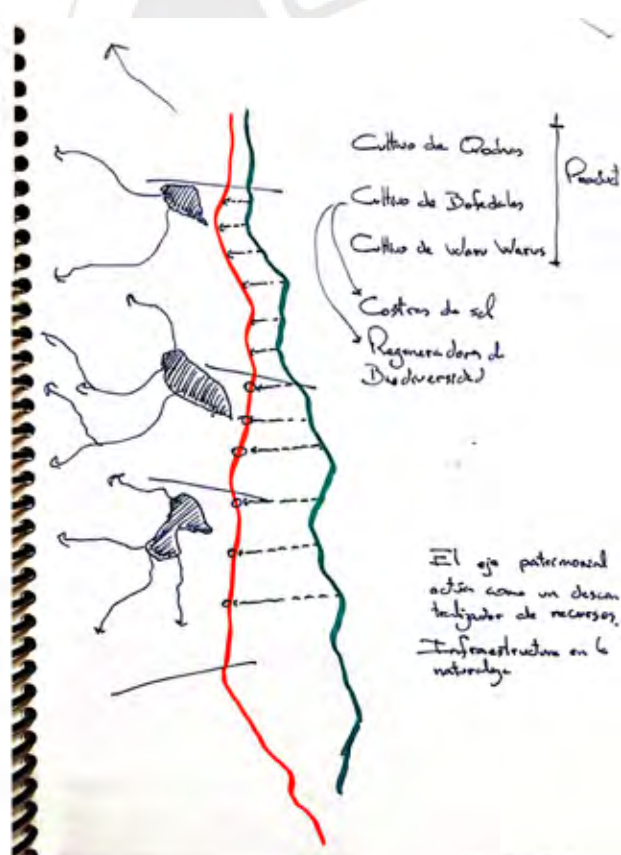 Cultivo de Qochas
Cultivo de Bofedales
Cultivo de Waru Warus
Product
Costras de sal
Regeneradora de
Biodiversidad
El eje patrimonial
actúa como un descen
tralizador de recursos,
Infraestructura en la
naturaleza